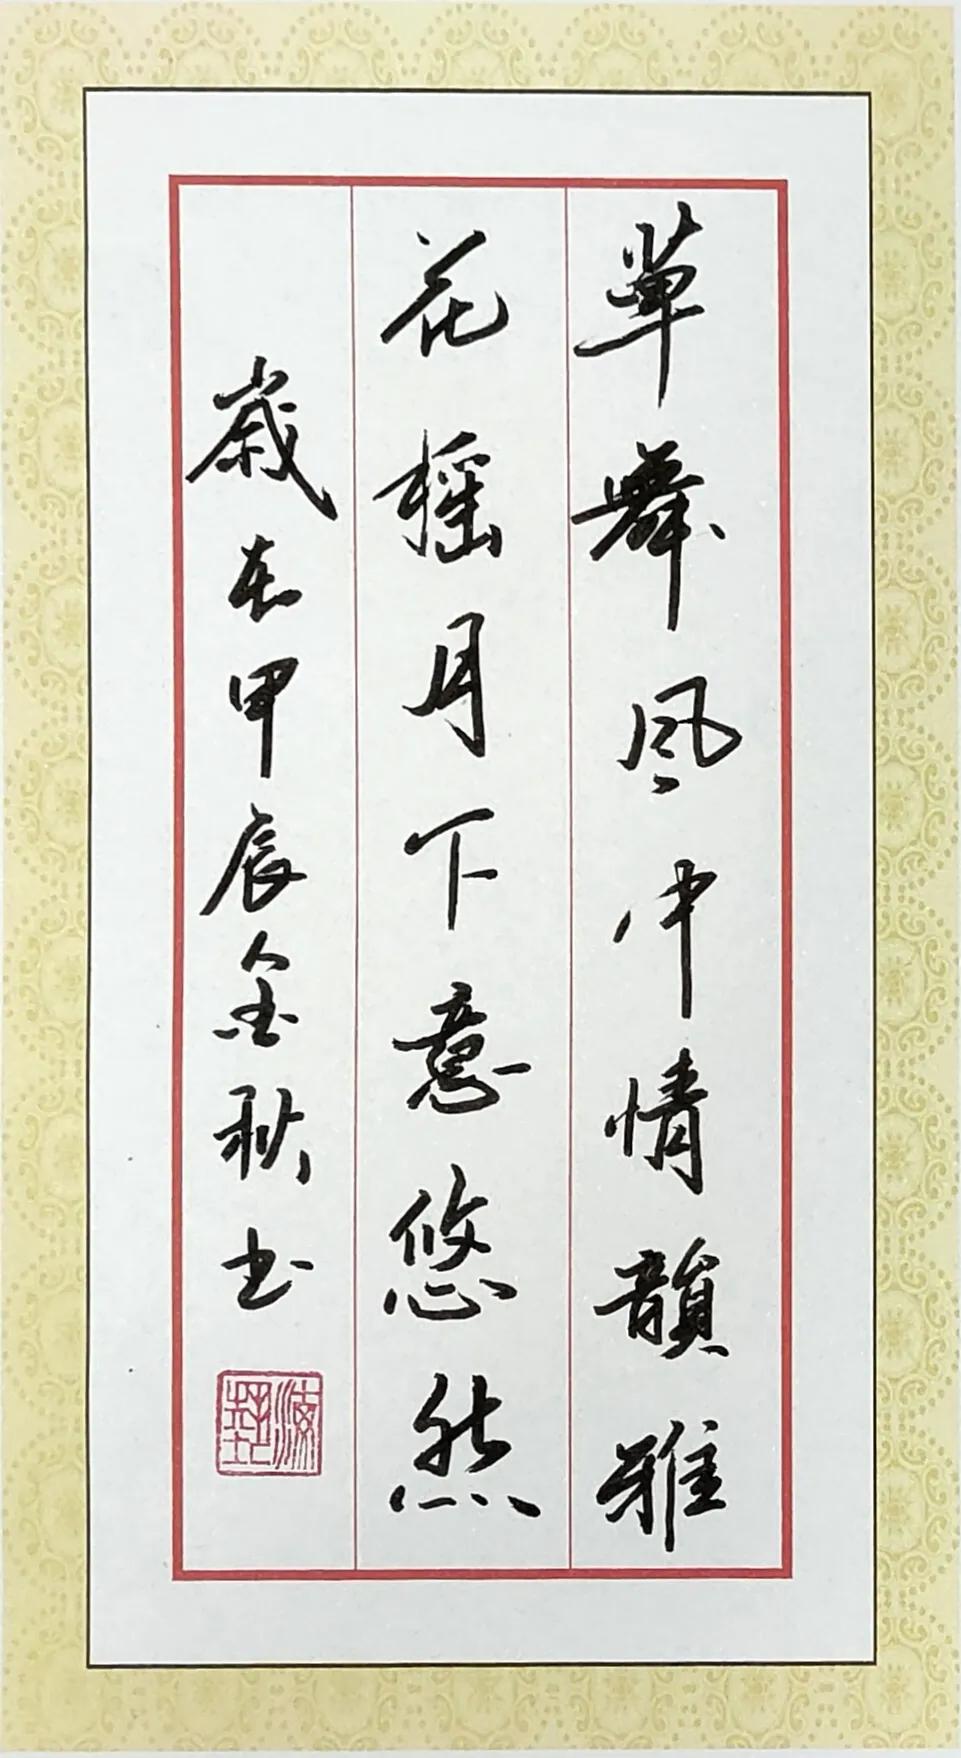 草舞风中情韻雅
花摇月下意悠然
歲在甲辰金秋书